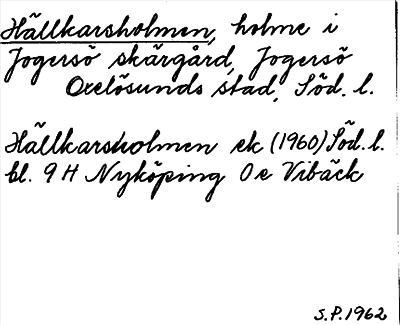 Hällkarsholmen, holme i
Jogersö skärgård, Jogersö
Oxelösunds stad, Söd. l.
Hällkarsholmen ek (1960) Söd. l.
bl. 9 H Nyköping Oe Vibäck
S.P. 1962